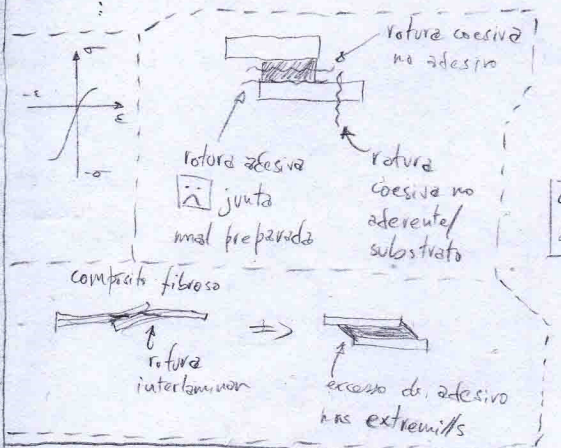 σ
-ε
ε
-σ
rotura coesiva
no adesivo
rotura adesiva
junta
mal preparada
rotura
coesiva no
aderente/
substrato
compósito fibroso
rotura
interlaminar
=>
excesso de adesivo
nas extremi//s